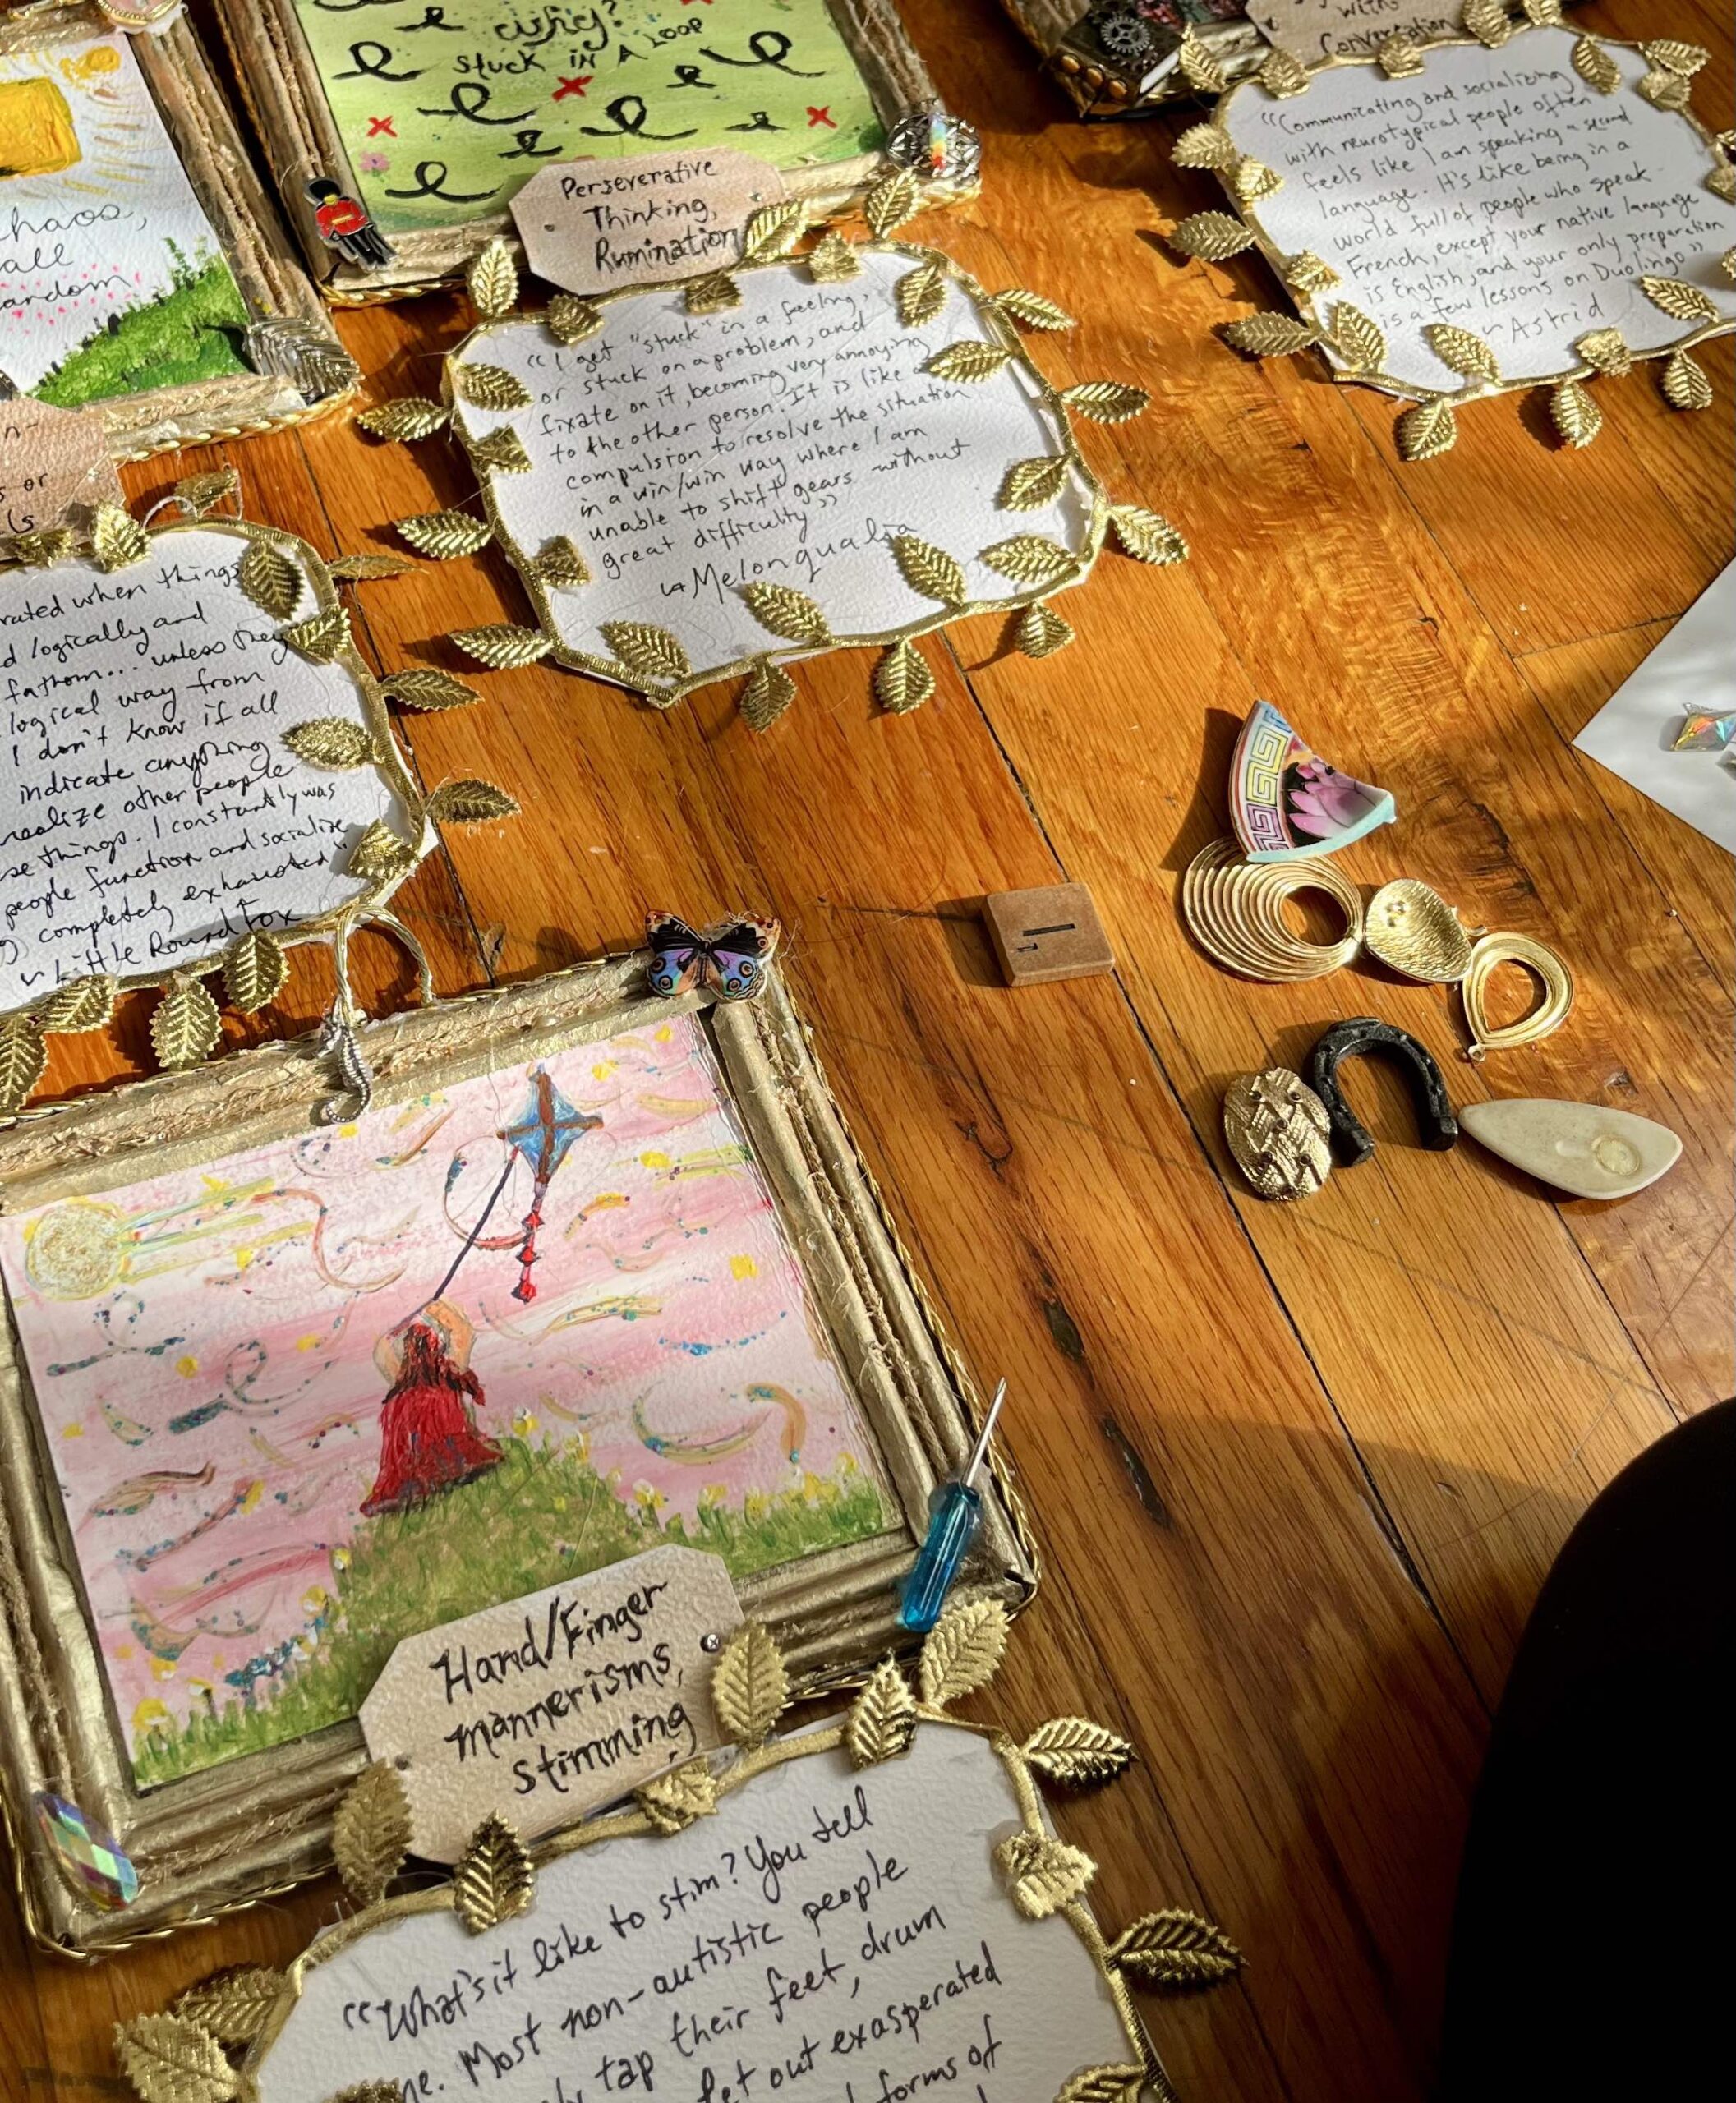 why?
STUCK IN A LOOP
Perseverative
Thinking,
Rumination
with
Conversation
"Communicating and socializing
with neurotypical people often
feels like I am speaking a second
language. It's like being in a
world full of people who speak
French, except your native language
is English, and your only preparation
is a few lessons on Duolingo"
~Astrid
"I get "stuck" in a feeling,
or stuck on a problem, and
fixate on it, becoming very annoying
to the other person. It is like a
compulsion to resolve the situation
in a win/win way where I am
unable to shift gears without
great difficulty"
~Melonqualia
chaos,
all
random
n-
s or
ls
rated when things
d logically and
fathom... unless they
logical way from
I don't know if all
indicate anything
realize other people
se things. I constantly was
people function and socialize
completely exhausted"
~Little Round Fox
Hand/Finger
mannerisms,
stimming
"What's it like to stim? You tell
me. Most non-autistic people
tap their feet, drum
let out exasperated
forms of